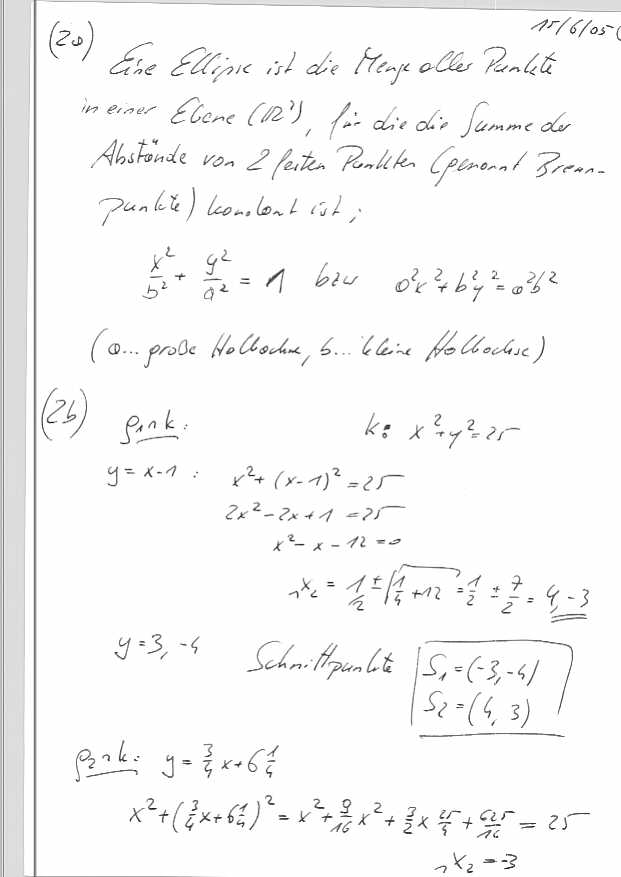 15/6/05
(2a)
Eine Ellipse ist die Menge aller Punkte
in einer Ebene (ℝ²), für die die Summe der
Abstände von 2 festen Punkten (genannt Brenn-
punkte) konstant ist;
x²/b² + y²/a² = 1 bzw a²x² + b²y² = a²b²
(a... große Halbachse, b... kleine Halbachse)
(2b)
g₁∩k: k: x² + y² = 25
y = x-1 : x² + (x-1)² = 25
2x² - 2x + 1 = 25
x² - x - 12 = 0
₁x₂ = 1/2 ± √(1/4 + 12) = 1/2 ± 7/2 = 4, -3
y = 3, -4 Schnittpunkte S₁ = (-3, -4)
S₂ = (4, 3)
g₂∩k: y = 3/4 x + 6 1/4
x² + (3/4 x + 6 1/4)² = x² + 9/16 x² + 3/2 x 25/4 + 625/16 = 25
₁x₂ = -3